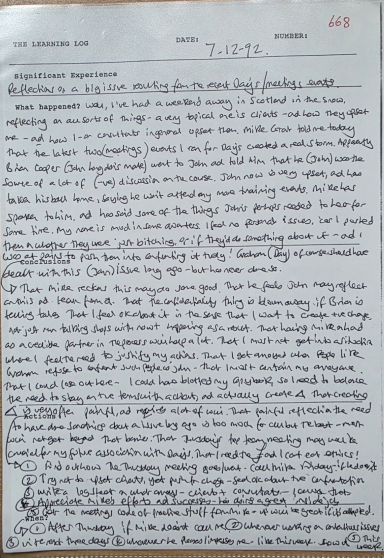 668
THE LEARNING LOG DATE: 7-12-92. NUMBER:
Significant Experience
Reflections on a big issue resulting from the recent Days/meetings events.
What happened? Well, I've had a weekend away in Scotland in the snow,
reflecting on all sorts of things - a very topical one is clients - and how they upset
me - and how I - or consultants in general upset them. Mike Grat told me today
that the latest two (meetings) events I ran for Days created a redstorm. Apparently
Brian Cooper (John's mate) went to John and told him that he (John) was the
source of a lot of (-ve) discussion on the course. John now is very upset, and has
taken his ball home, saying he won't attend any more training events. Mike has
spoken to him, and has said some of the things John's perhaps needed to hear for
some time. My name is mud in some quarters. I feel no personal issues, 'cos I pushed
them on whether they were 'just bitching' or if they'd do something about it - and I
was at pains to push them into confronting it truly! Graham (Day) of course should have
Conclusions
dealt with this (John) issue long ago - but he never does.
① That Mike reckons this may do some good. That he feels John may reflect
on this and learn from it. That the confidentiality thing is blown away if Brian is
telling tales. That I feel ok about it in the sense that I want to create the change,
not just run talking shops with nowt happening as a result. That having Mike on board
as a credible partner in the process will help a lot. That I must not get into a situation
where I feel the need to justify my actions. That I get annoyed when people like
Graham refuse to confront such people as John - that I must contain my annoyance.
That I could lose out here - I could have blotted my copybook, so I need to balance
the need to stay on true terms with a client, and actually create △. That creating
△ is very often painful, and requires a lot of will. That painful reflection the need
Actions
to have done something about a issue long ago is too much for all but the best - most
will not get beyond that barrier. That Thursday's team meeting may well be
crucial for my future association with Days. That I need the and I can't eat ethics!
① Find out how the Thursday meeting goes/went - call Mike Friday if he doesn't
② Try not to upset clients, yet push for change - seek ok about the confrontation
③ write a log sheet on what
④ Appreciate Mike's efforts and successes - he
⑤ for the meetings code of practice stuff from Mike - it would be great if it's adopted.
When?
① After Thursday if Mike doesn't call me ② whenever working on contentious issues
③ in the next three days ④ whenever he like this week. ⑤ This week